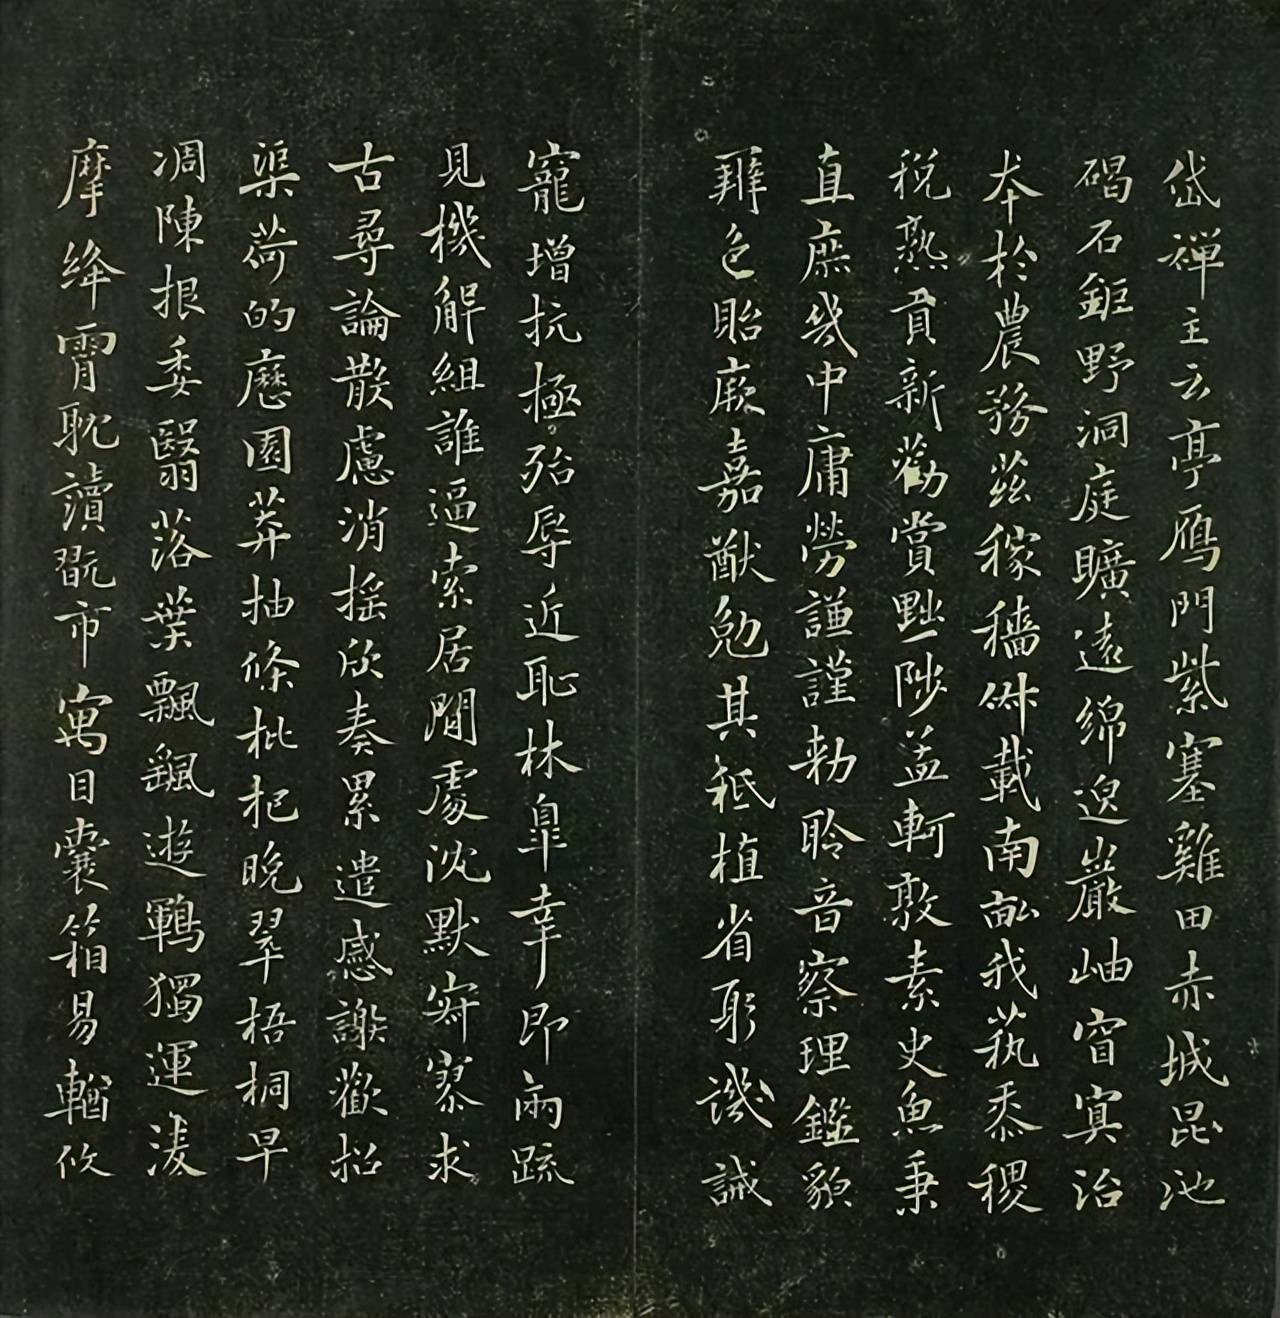 岱禪主云亭鴈門紫塞雞田赤城昆池
碣石鉅野洞庭曠遠綿邈巖岫窅冥治
本於農務茲稼穡俶載南畝我藝黍稷
稅熟貢新勸賞黜陟孟軻敦素史魚秉
直庶幾中庸勞謙謹勅聆音察理鑑貌
辨色貽厥嘉猷勉其祗植省躬譏誡
寵增抗極殆辱近恥林皐幸即兩疏
見機解組誰逼索居閒處沈默寂寥求
古尋論散慮消搖欣奏累遣慼謝歡招
渠荷的歷園莽抽條枇杷晚翠梧桐早
凋陳根委翳落葉飄颻遊鵾獨運淩
摩絳霄耽讀翫市寓目囊箱易輶攸